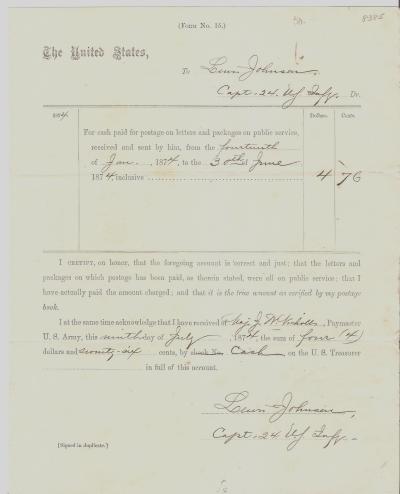 (Form No. 15.)
8385
The United States,
To Lewis Johnson,
Capt. 24. US Infy. Dr.
1874
Dollars. Cents.
For cash paid for postage on letters and packages on public service,
received and sent by him, from the fourteenth
of Jan. , 1874, to the 30th of June
1874 inclusive
4 76
I CERTIFY, on honor, that the foregoing account is correct and just; that the letters and
packages on which postage has been paid, as therein stated, were all on public service; that I
have actually paid the amount charged; and that it is the true amount as verified by my postage
book.
I at the same time acknowledge that I have received of Maj. J. W. Nicholls, Paymaster
U. S. Army, this ninth day of July , 1874, the sum of four (4)
dollars and seventy-six cents, by check No. Cash , on the U. S. Treasurer
in full of this account.
Lewis Johnson,
Capt. 24 US Infy.
[Signed in duplicate.]